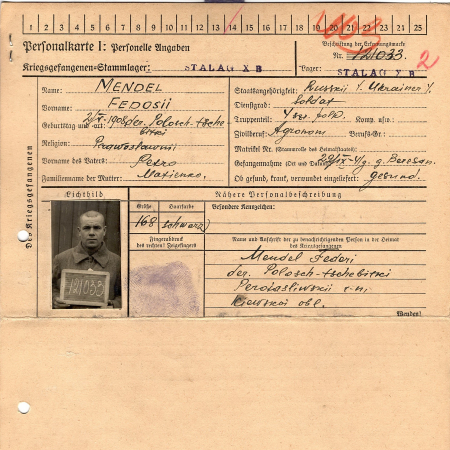 1 2 3 4 5 6 7 8 9 10 11 12 13 14 15 16 17 18 19 20 21 22 23 24 25
Personalkarte I: Personelle Angaben
Kriegsgefangenen-Stammlager: STALAG X B
Beschriftung der Erkennungsmarke
Nr. 121033
Lager: STALAG X B
2
Des Kriegsgefangenen
Name: MENDEL
Vorname: FEDOSII
Geburtstag und -ort:
Religion:
Vorname des Vaters: Pedro
Familienname der Mutter: Maxienko
Staatsangehörigkeit: Russki /Ukrainer/.
Dienstgrad: Soldat
Truppenteil: Komp. usw.:
Zivilberuf: Agronom Berufs-Gr.:
Matrikel Nr. (Stammrolle des Heimatstaates):
Gefangennahme (Ort und Datum): g. Beresan.
Ob gesund, krank, verwundet eingeliefert: gesund.
Lichtbild
121033
Nähere Personalbeschreibung
Größe Haarfarbe
168 schwarz
Fingerabdruck
des rechten! Zeigefingers
Besondere Kennzeichen:
Name und Anschrift der zu benachrichtigenden Person in der Heimat
des Kriegsgefangenen
Mendel Fedori
der. Polosch-tschebitki
r-n.
Kiewskoi obl.
Wenden!